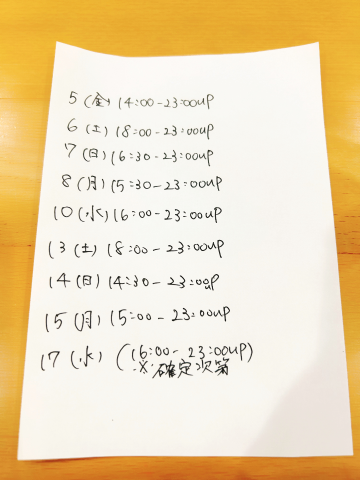 5(金)14:00-23:00up
6(土)18:00-23:00up
7(日)16:30-23:00up
8(月)15:30-23:00up
10(水)16:00-23:00up
13(土)18:00-23:00up
14(日)14:30-23:00up
15(月)15:00-23:00up
17(水)(16:00-23:00up)
※確定次第